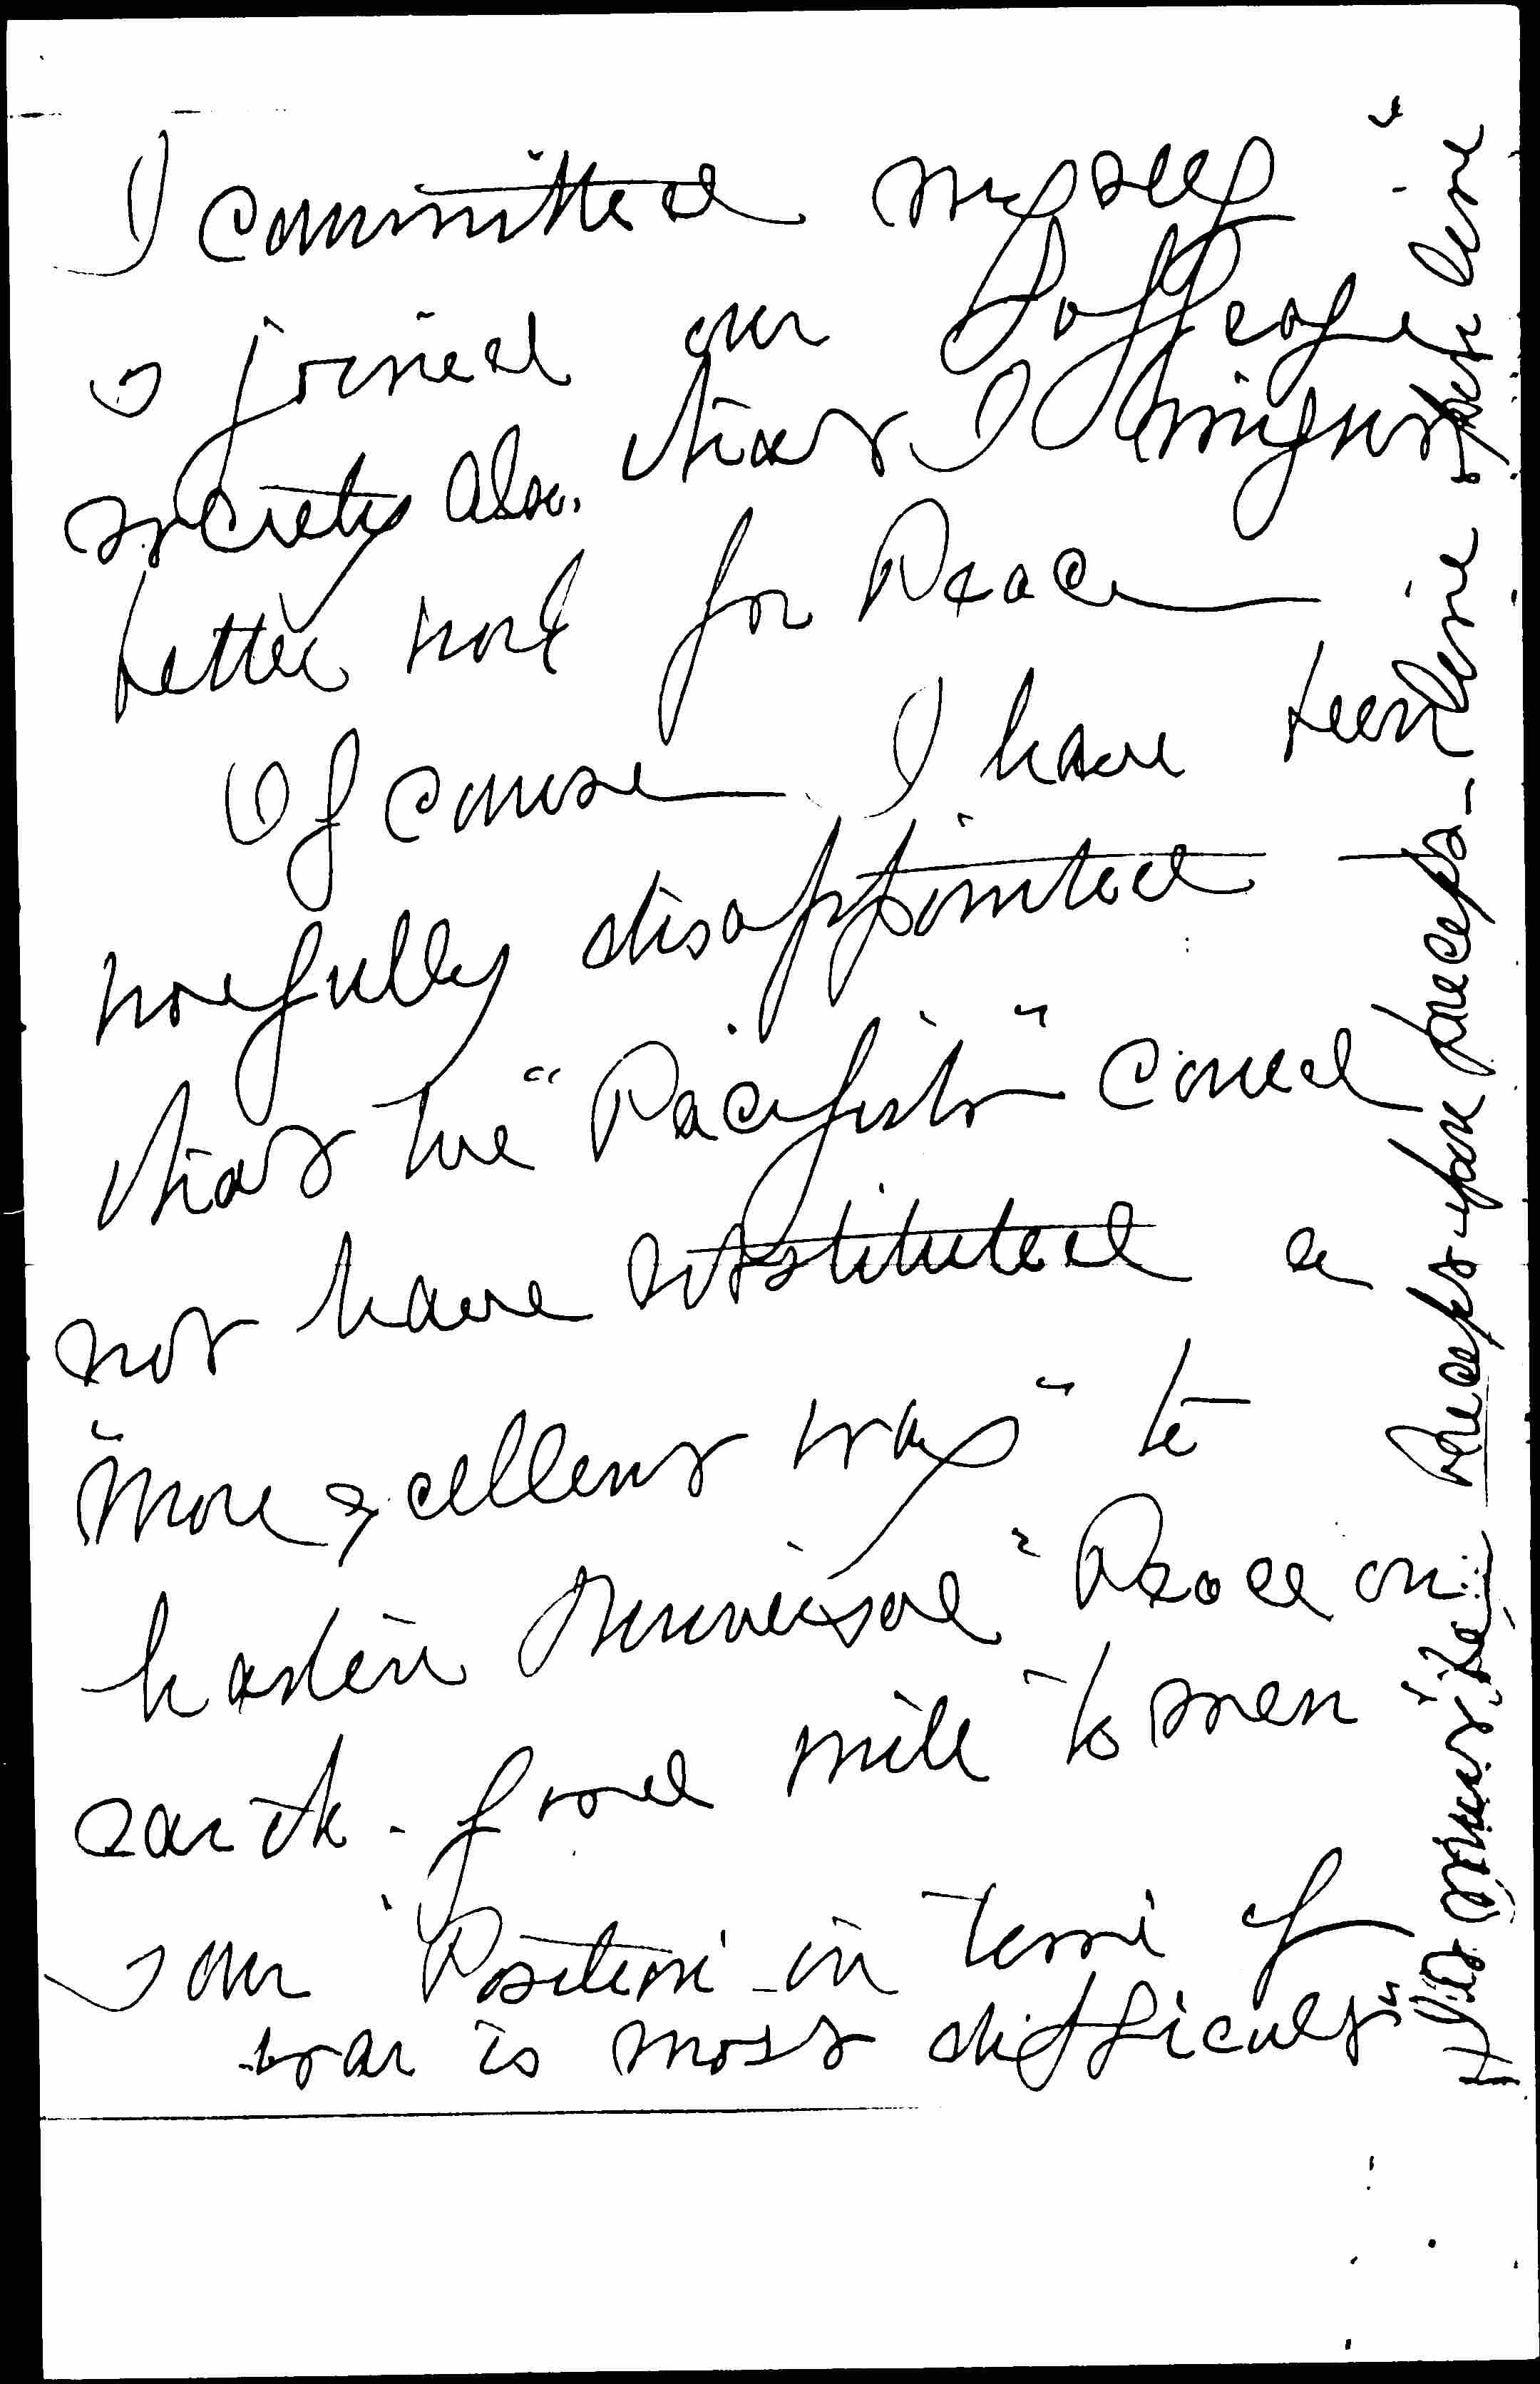 I committed myself
& joined our Suffrage
society also. that I might
better work for Peace
Of course I have been
woefully disappointed —
that we "Pacifists" could
not have substituted a
"more excellent way" to
hasten universal "Peace on
earth. good will" to men
& our "Position in time of
war is most difficult"
It is must be precept upon precept - line upon line